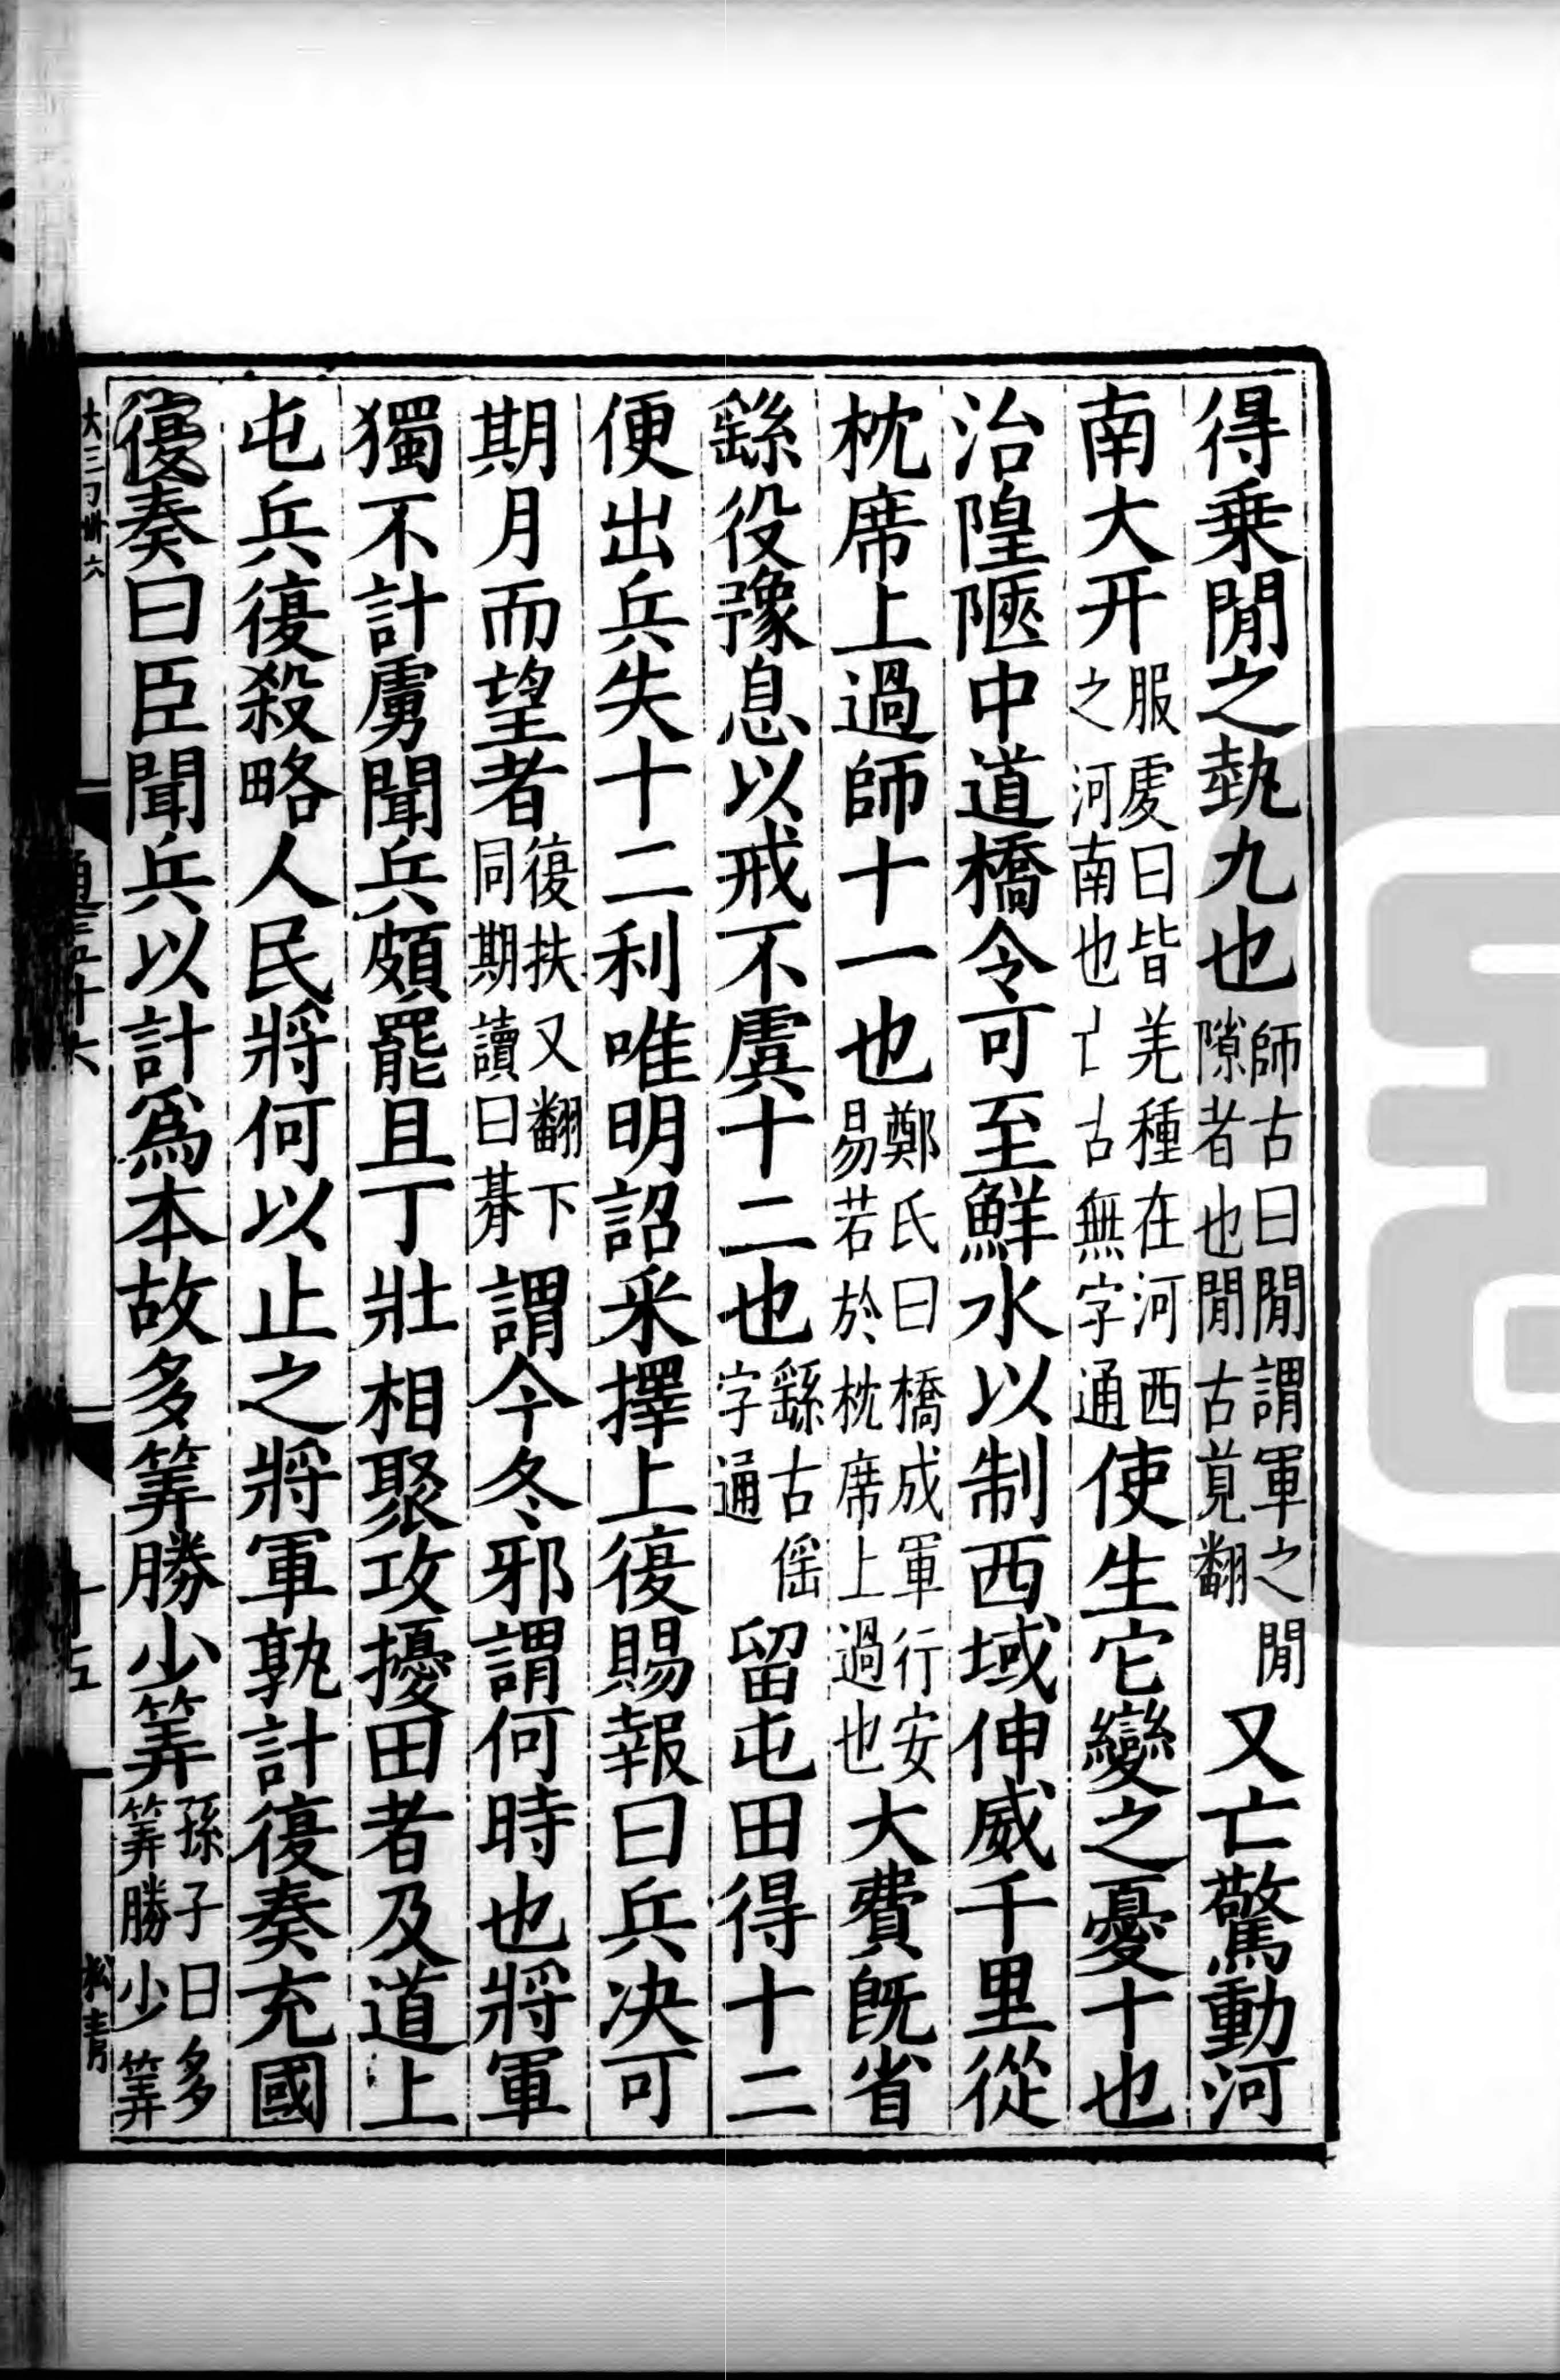 得乗閒之埶九也師古曰閒謂軍之閒隙者也閒古莧翻又亡驚動河
南大幵服䖏曰皆羌種在河西之河南也亡古無字通使生它變之憂十也
治隍陿中道橋令可至鮮水以制西域伸威千里從
枕席上過師十一也鄭氏曰橋成軍行安易若於枕席上過也大費旣省
繇役豫息以戒不虞十二也繇古傜字通留屯田得十二
便出兵失十二利唯明詔采擇上復賜報曰兵決可
期月而望者復扶又翻下同期讀曰朞謂今冬邪謂何時也將軍
獨不計虜聞兵頗罷且丁壯相聚攻擾田者及道上
屯兵復殺略人民將何以止之將軍孰計復奏充國
復奏曰臣聞兵以計爲本故多筭勝少筭孫子曰多筭勝少筭
十五